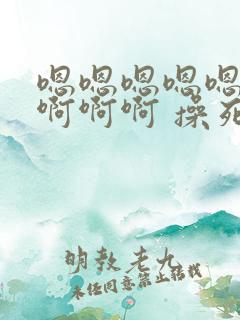 嗯嗯嗯嗯嗯
啊啊啊 操死
明教老九
未经同意禁止转载